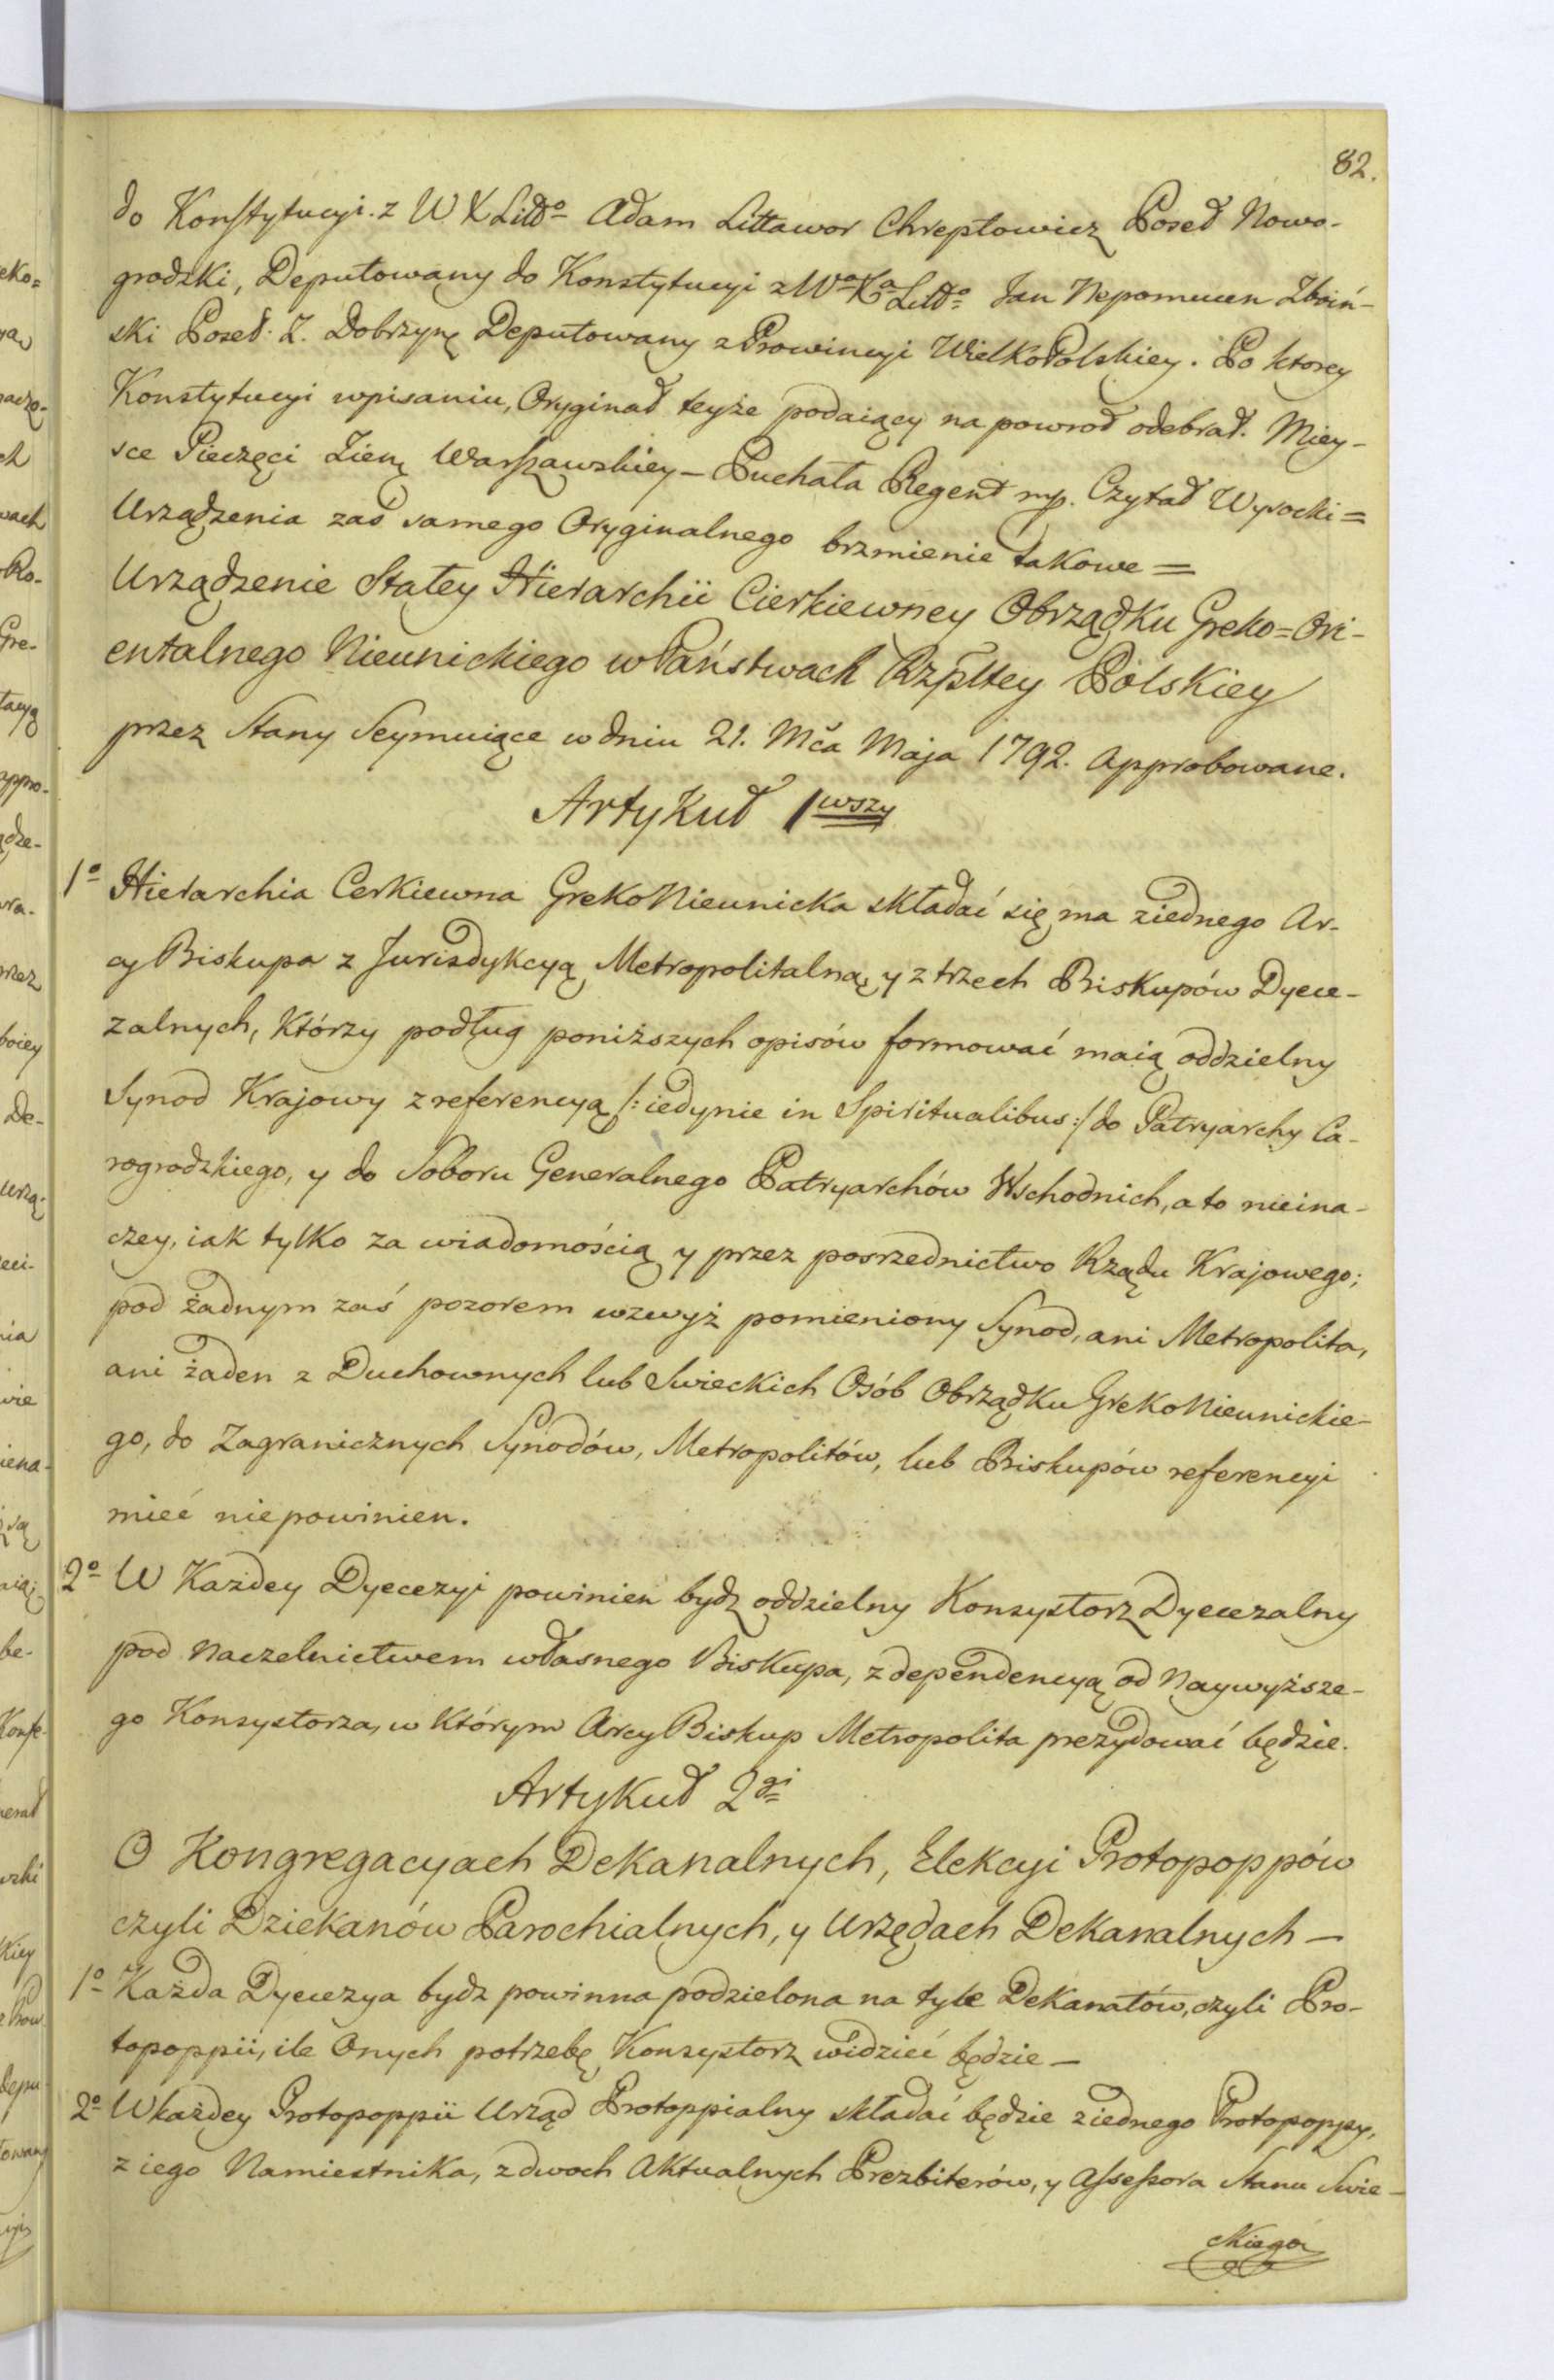 82.
do Konstytucyi z W X Littº Adam Littawor Chreptowicz Poseł Nowo-
grodzki, Deputowany do Konstytucyi z Wº Xª Littº Jan Nepomucen Zboiń-
ski Poseł Z. Dobrzyn Deputowany z Prowincyi WielkoPolskiey. Po ktorey
Konstytucyi wpisaniu, Oryginał teyże podaiący na powrod odebrał. Miey-
sce Pieczęci Ziem Warszawskiey – Puchała Regent mp. Czytał Wysocki =
Urządzenia zaś samego Oryginalnego brzmienie takowe =
Urządzenie Stałey Hierarchii Cierkiewney Obrządku Greko=Ori-
entalnego Nieunickiego w Państwach Rzpltey Polskiey
przez Stany Seymuiące w dniu 21. Mca Maja 1792. Approbowane.
Artykuł 1wszy
1º Hierarchia Cerkiewna GrekoNieunicka składać się ma ziednego Ar-
cyBiskupa z Jurisdykcyą Metropolitalną y z trzech Biskupów Dyece-
zalnych, Którzy podług poniższych opisów formować maią oddzielny
Synod Krajowy z referencyą /: iedynie in Spiritualibus :/ do Patryarchy Ca-
rogrodzkiego, y do Soboru Generalnego Patryarchów Wschodnich, a to nieina-
czey, iak tylko za wiadomością y przez posrzednictwo Rządu Krajowego;
pod żadnym zaś pozorem wzwyż pomieniony Synod, ani Metropolita,
ani żaden z Duchownych lub Swieckich Osób Obrządku GrekoNieunickie-
go, do Zagranicznych Synodów, Metropolitów, lub Biskupów referencyi
mieć niepowinien.
2º W Każdey Dyecezyi powinien bydz oddzielny Konsystorz Dyecezalny
pod Naczelnictwem własnego Biskupa, z dependencyą od Naywyższe-
go Konsystorza, w Którym ArcyBiskup Metropolita prezydować będzie.
Artykuł 2gi
O Kongregacyach Dekanalnych, Elekcyi Protopoppów
czyli Dziekanów Parochialnych, y Urzędach Dekanalnych –
1º Każda Dyecezya bydz powinna podzielona na tyle Dekanatów, czyli Pro-
topoppii, ile Onych potrzebę Konsystorz widzieć będzie –
2º W każdey Protopoppii Urząd Protoppialny składać będzie ziednego Protopoppy,
z iego Namiestnika, z dwoch Aktualnych Prezbiterów, y Assessora Stanu Swie-
ckiego